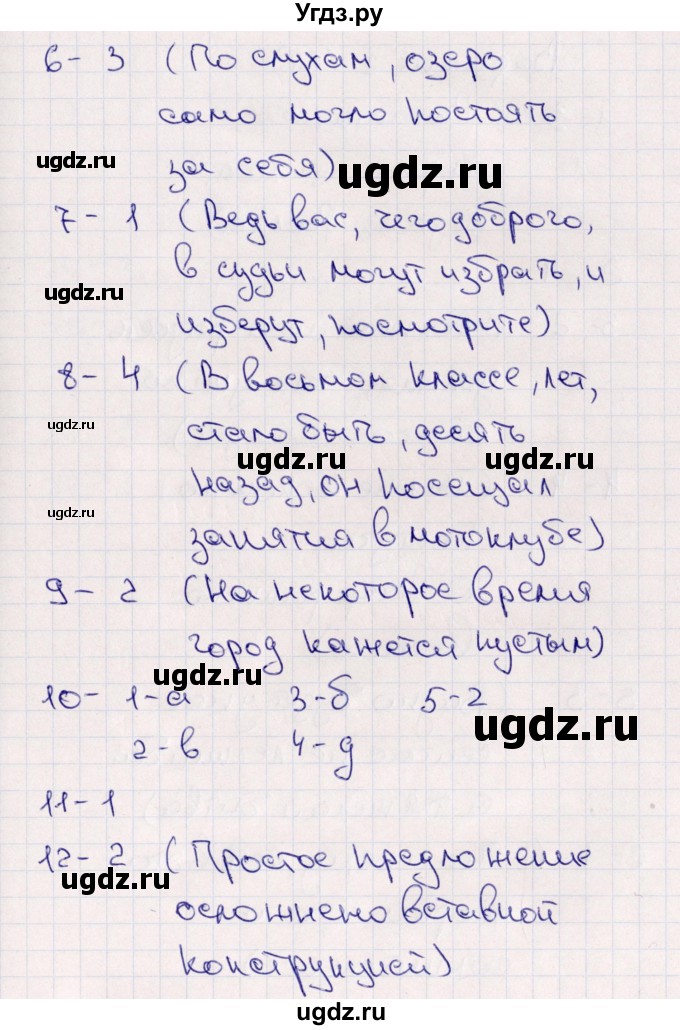 Угдз.ру
6- 3 (По слухам, озеро
само могло постоять
ugdz.ru
за себя)
ugdz.ru
7- 1 (Ведь вас, чего доброго,
в судьи могут избрать, и
ugdz.ru
изберут, посмотрите)
8- 4 (В восьмом классе, лет,
ugdz.ru
стало быть, десять
ugdz.ru
ugdz.ru
назад, он посещал
ugdz.ru
занятия в мотоклубе)
9- 2 (На некоторое время
город кажется пустым)
ugdz.ru
10- 1-а 3-б 5-г
ugdz.ru
2-в 4-д
11-1
12-2 (Простое предложение
ugdz.ru
осложнено вставной
конструкцией)
ugdz.ru
ugdz.ru
ugdz.ru